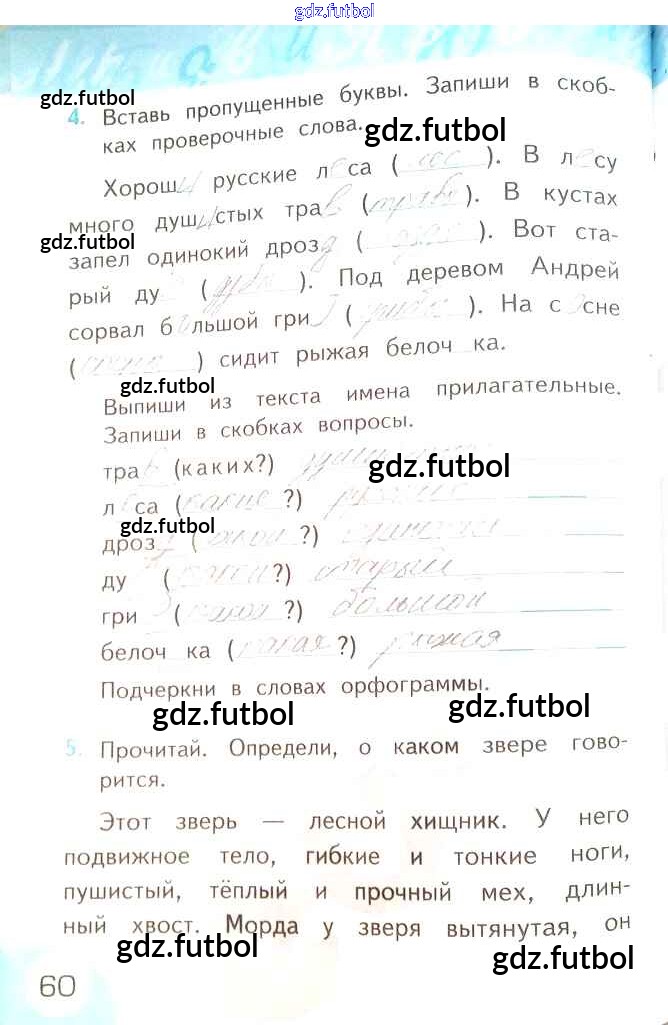 gdz.futbol
gdz.futbol
4. Вставь пропущенные буквы. Запиши в скоб-
ках проверочные слова.
gdz.futbol
Хороши русские леса (лес). В лесу
много душистых трав (трава). В кустах
gdz.futbol
запел одинокий дрозд ( ). Вот ста-
рый ду ( ). Под деревом Андрей
сорвал большой гри ( ). На с сне
( ) сидит рыжая белоч ка.
gdz.futbol
Выпиши из текста имена прилагательные.
Запиши в скобках вопросы.
трав (каких?)
gdz.futbol
леса (какие?)
gdz.futbol
дрозд (какой?)
ду (какой?) старый
гри (какой?) большой
белоч ка (какая?) рыжая
Подчеркни в словах орфограммы.
gdz.futbol
gdz.futbol
5. Прочитай. Определи, о каком звере гово-
рится.
Этот зверь — лесной хищник. У него
подвижное тело, гибкие и тонкие ноги,
пушистый, тёплый и прочный мех, длин-
ный хвост. Морда у зверя вытянутая, он
gdz.futbol
gdz.futbol
60